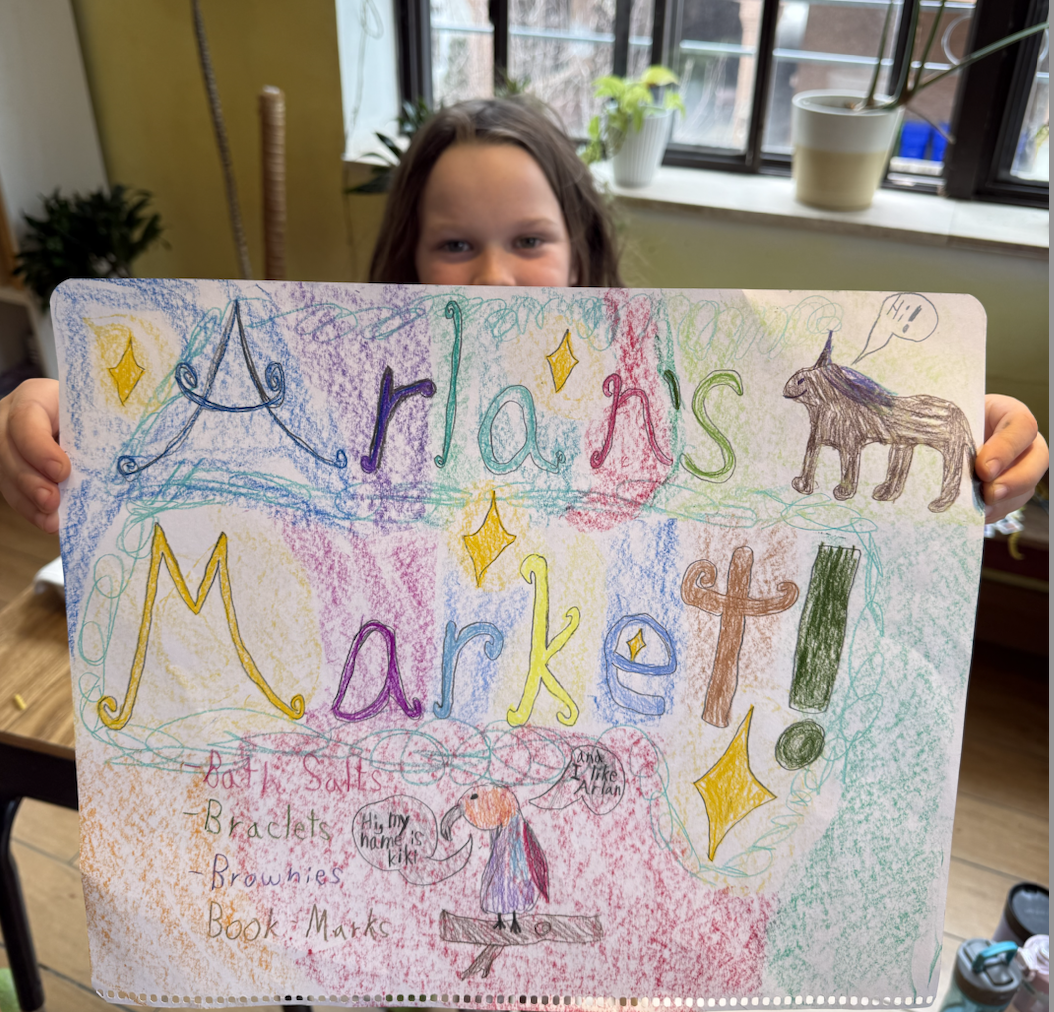 Arlan's
Hi!
Market!
- Bath Salts
and
I like
Arlan
- Braclets
Hi, my
name is
kiki
- Brownies
Book Marks